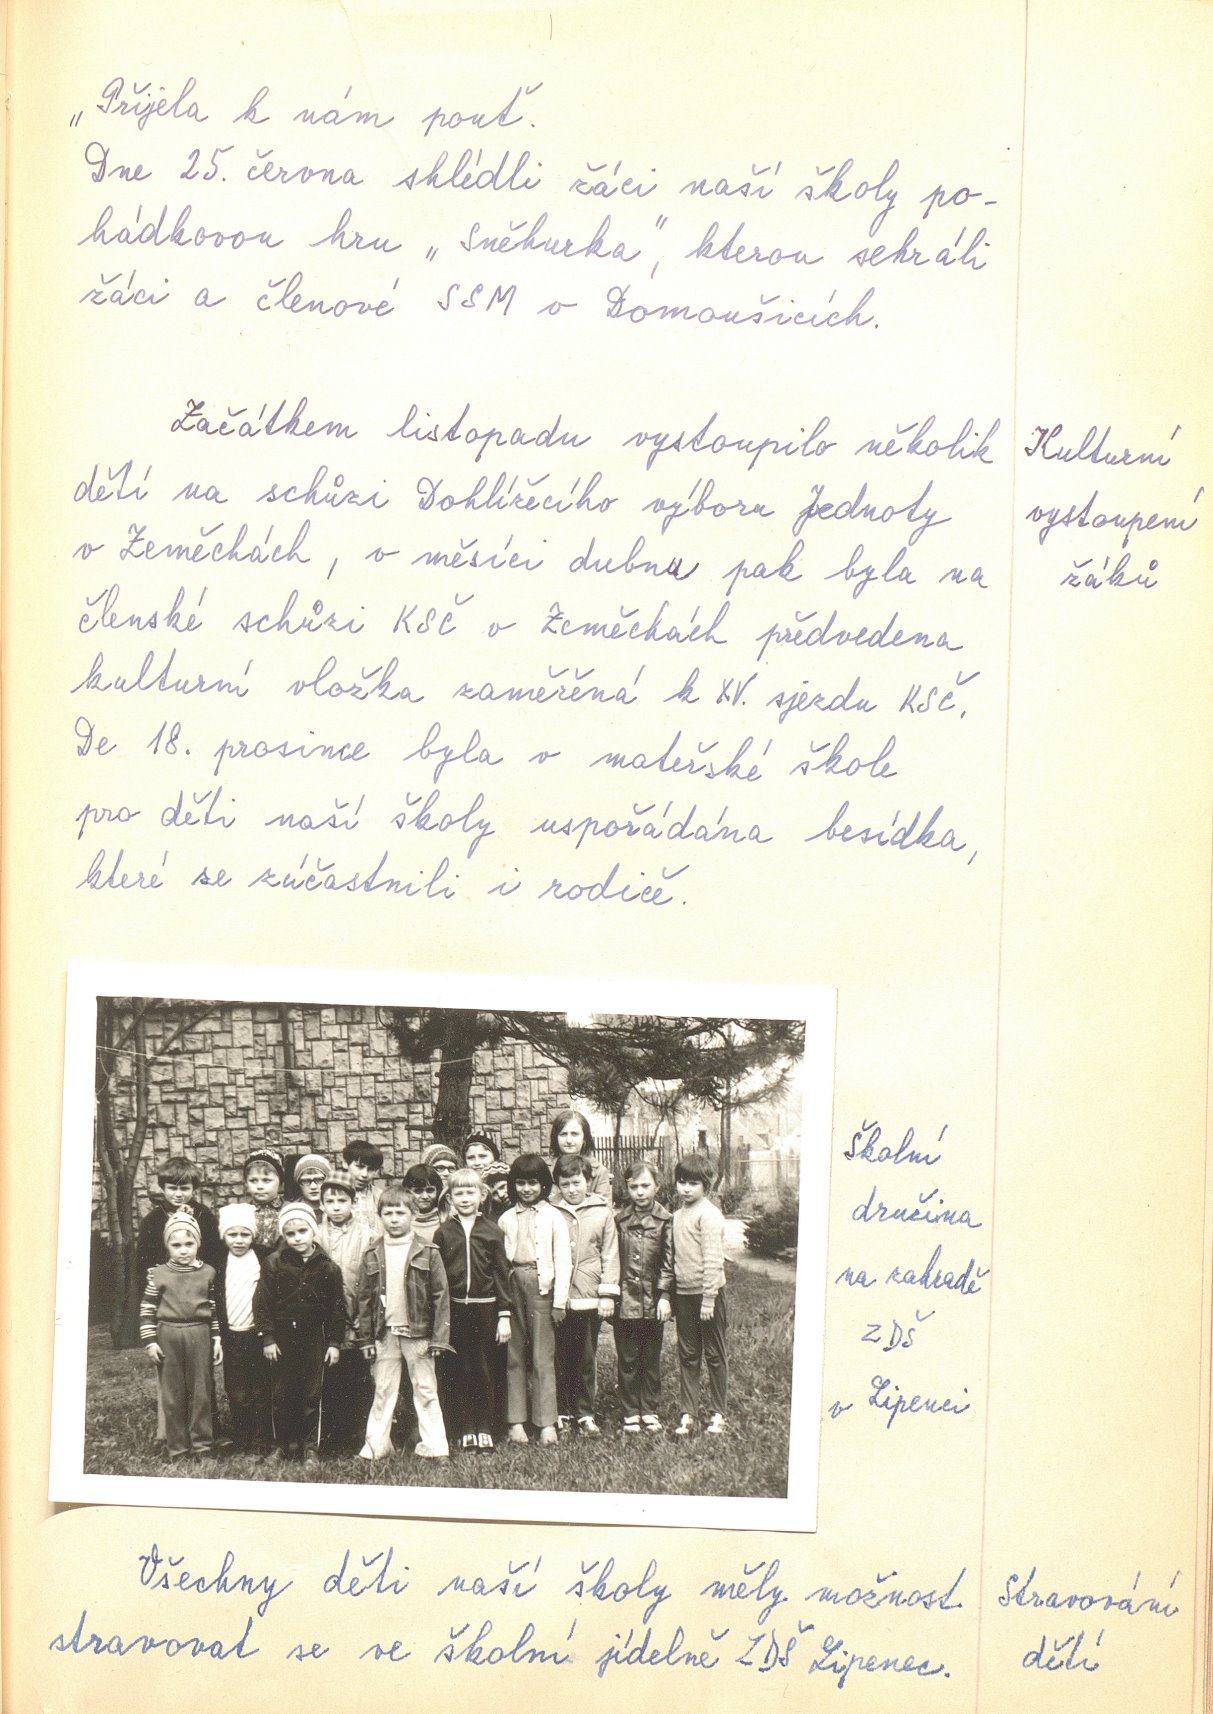 „Přijela k nám pouť.
Dne 25. června shlédli žáci naší školy po-
hádkovou hru „Sněhurka", kterou sehráli
žáci a členové SSM v Domoušicích.
Začátkem listopadu vystoupilo několik
dětí na schůzi Dohlížecího výboru Jednoty
v Zeměchách, v měsíci dubnu pak byla na
členské schůzi KSČ v Zeměchách předvedena
kulturní vložka zaměřená k XV. sjezdu KSČ.
De 18. prosince byla v mateřské škole
pro děti naší školy uspořádána besídka,
které se zúčastnili i rodiče.
Kulturní
vystoupení
žáků
Školní
družina
na zahradě
ZDŠ
v Lipenci
Všechny děti naší školy měly možnost
stravovat se ve školní jídelně ZDŠ Lipenec.
Stravování
dětí